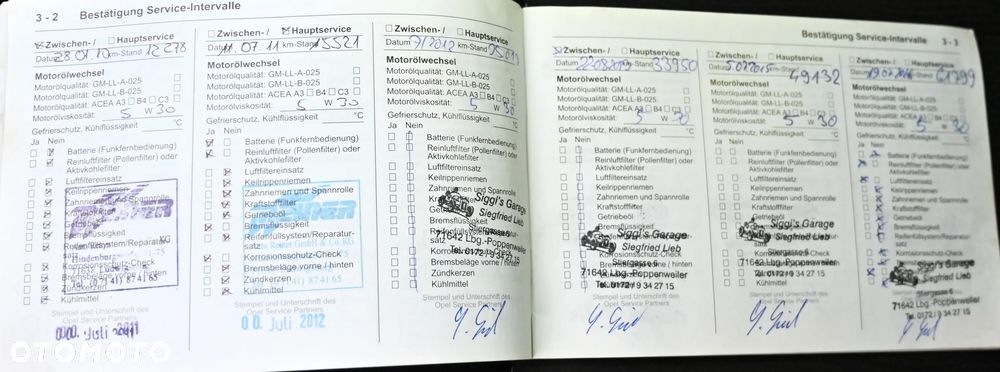 3 - 2 Bestätigung Service-Intervalle
Zwischen- / Hauptservice
Datum 28.01.10 km-Stand 12 278
Motorölwechsel
Motorölqualität: GM-LL-A-025
Motorölqualität: GM-LL-B-025
Motorölqualität: ACEA A3 B4 C3
Motorölviskosität: 5 W 30
Gefrierschutz, Kühlflüssigkeit °C
Ja Nein
Batterie (Funkfernbedienung)
Reinluftfilter (Pollenfilter) oder
Aktivkohlefilter
Luftfiltereinsatz
Keilrippenriemen
Zahnriemen und Spannrolle
Kraftstofffilter
Getriebeöl
Bremsflüssigkeit
Korrosionsschutz-Check
Bremsbeläge vorne / hinten
Zündkerzen
Kühlmittel
Stempel und Unterschrift des
Opel Service Partners
Juli 2011
Zwischen- / Hauptservice
07.11 km-Stand 15521
Motorölwechsel
Motorölqualität: GM-LL-A-025
Motorölqualität: GM-LL-B-025
Motorölqualität: ACEA A3 B4 C3
Motorölviskosität: 5 W 30
Gefrierschutz, Kühlflüssigkeit °C
Ja Nein
Batterie (Funkfernbedienung)
Reinluftfilter (Pollenfilter) oder
Aktivkohlefilter
Luftfiltereinsatz
Keilrippenriemen
Zahnriemen und Spannrolle
Kraftstofffilter
Getriebeöl
Bremsflüssigkeit
Reifenfüllsystem/Reparatur-
satz
GmbH & Co. KG
Korrosionsschutz-Check
Bremsbeläge vorne / hinten
Zündkerzen
Kühlmittel
Stempel und Unterschrift des
Opel Service Partners
00. Juli 2012
Zwischen- / Hauptservice
Datum 7/2012 km-Stand
Motorölwechsel
Motorölqualität: GM-LL-A-025
Motorölqualität: GM-LL-B-025
Motorölqualität: ACEA A3 B4 C3
Motorölviskosität: 5 W 30
Gefrierschutz, Kühlflüssigkeit °C
Ja Nein
Batterie (Funkfernbedienung)
Reinluftfilter (Pollenfilter) oder
Aktivkohlefilter
Luftfiltereinsatz
Keilrippenriemen
Zahnriemen und Spannrolle
Siggi's Garage
Siegfried Lieb
Stiergasse 6
71642 Lbg.-Poppenweiler
Tel. 0172 / 9 34 27 15
Bremsbeläge vorne / hinten
Zündkerzen
Kühlmittel
Stempel und Unterschrift des
Opel Service Partners
Bestätigung Service-Intervalle 3 - 3
Zwischen- / Hauptservice
Datum km-Stand 33950
Motorölwechsel
Motorölqualität: GM-LL-A-025
Motorölqualität: GM-LL-B-025
Motorölqualität: ACEA A3 B4 C3
Motorölviskosität: 5 W 30
Gefrierschutz, Kühlflüssigkeit °C
Ja Nein
Batterie (Funkfernbedienung)
Reinluftfilter (Pollenfilter) oder
Aktivkohlefilter
Luftfiltereinsatz
Keilrippenriemen
Zahnriemen und Spannrolle
Kraftstofffilter
Getriebeöl
Siggi's Garage
Siegfried Lieb
Stiergasse 6
71642 Lbg.-Poppenweiler
Tel. 0172 / 9 34 27 15
Stempel und Unterschrift des
Opel Service Partners
Zwischen- / Hauptservice
49132
Motorölwechsel
Motorölqualität: GM-LL-A-025
Motorölqualität: GM-LL-B-025
Motorölqualität: ACEA A3 B4 C3
Motorölviskosität: 5 W 30
Gefrierschutz, Kühlflüssigkeit °C
Ja Nein
Batterie (Funkfernbedienung)
Reinluftfilter (Pollenfilter) oder
Aktivkohlefilter
Luftfiltereinsatz
Keilrippenriemen
Zahnriemen und Spannrolle
Kraftstofffilter
Getriebeöl
Siggi's Garage
Siegfried Lieb
Stiergasse 6
71642 Lbg.-Poppenweiler
Tel. 0172 / 9 34 27 15
Stempel und Unterschrift des
Opel Service Partners
Zwischen- / Hauptservice
61799
Motorölwechsel
Motorölqualität: GM-LL-A-025
Motorölqualität: GM-LL-B-025
Motorölqualität: ACEA A3 B4 C3
Motorölviskosität: 5 W 30
Gefrierschutz, Kühlflüssigkeit °C
Ja Nein
Batterie (Funkfernbedienung)
Reinluftfilter (Pollenfilter) oder
Aktivkohlefilter
Luftfiltereinsatz
Keilrippenriemen
Zahnriemen und Spannrolle
Kraftstofffilter
Getriebeöl
Bremsflüssigkeit
Reifenfüllsystem/Reparatur-
satz
Korrosionsschutz-Check
Siggi's Garage
Siegfried Lieb
Stiergasse 6
71642 Lbg.-Poppenweiler
Tel. 0172 / 9 34 27 15
OTOMOTO